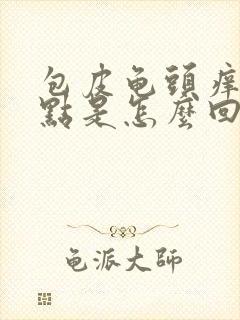 包皮龟頭痒
點是怎麼回
龟派大師